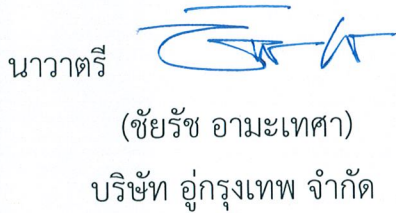 นาวาตรี
(ชัยรัช อามะเทศา)
บริษัท อู่กรุงเทพ จำกัด